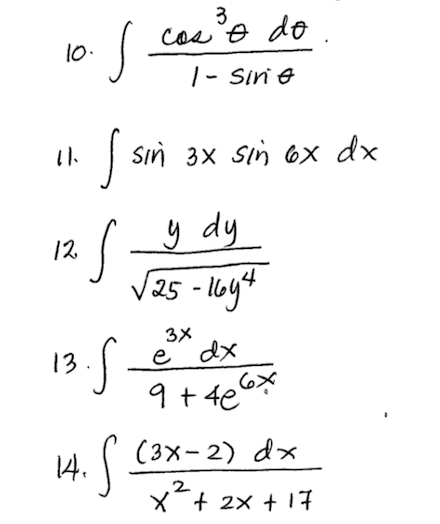 10. ∫ cos³θ dθ / (1 - sin θ)
11. ∫ sin 3x sin 6x dx
12. ∫ y dy / √(25 - 16y⁴)
13. ∫ e³ˣ dx / (9 + 4e⁶ˣ)
14. ∫ (3x - 2) dx / (x² + 2x + 17)